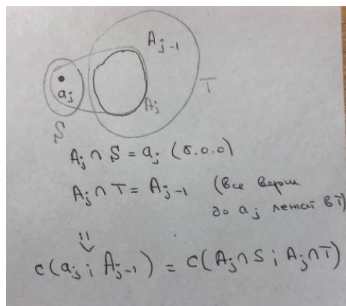 A_{j-1}
a_j
T
A_j
S
A_j ∩ S = a_j (б.о.о)
A_j ∩ T = A_{j-1} (все верш
до a_j лежат в T)
c(a_j; A_{j-1}) = c(A_j ∩ S; A_j ∩ T)